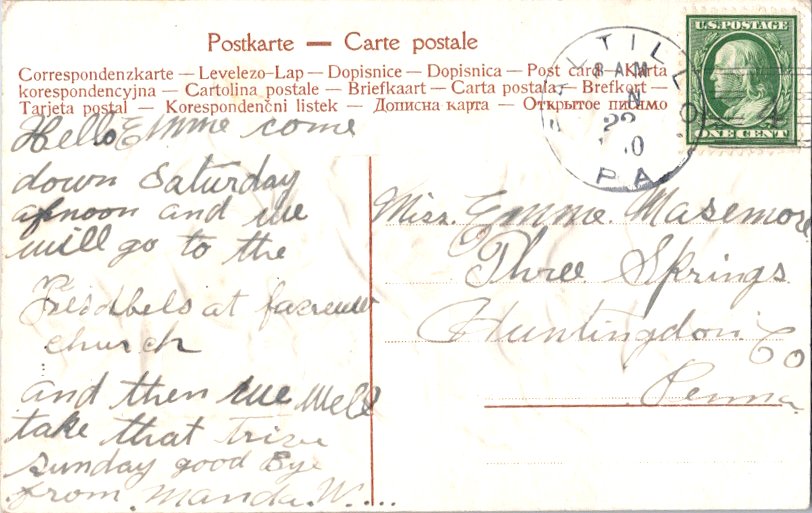 Postkarte — Carte postale
Correspondenzkarte — Levelezo-Lap — Dopisnice — Dopisnica — Post card — Karta
korespondencyjna — Cartolina postale — Briefkaart — Carta postala — Brefkort —
Tarjeta postal — Korespondenčni listek — Дописна карта — Открытое письмо
SALTILLO
8 AM
22
PA
U.S. POSTAGE
ONE CENT
Hello Emme come
down Saturday
afnoon and we
will go to the
at
church
and then we well
take that
sunday good Bye
from Manda. W....
Miss. Emme. Masemore
Three Springs
Huntingdon. Co
Penna